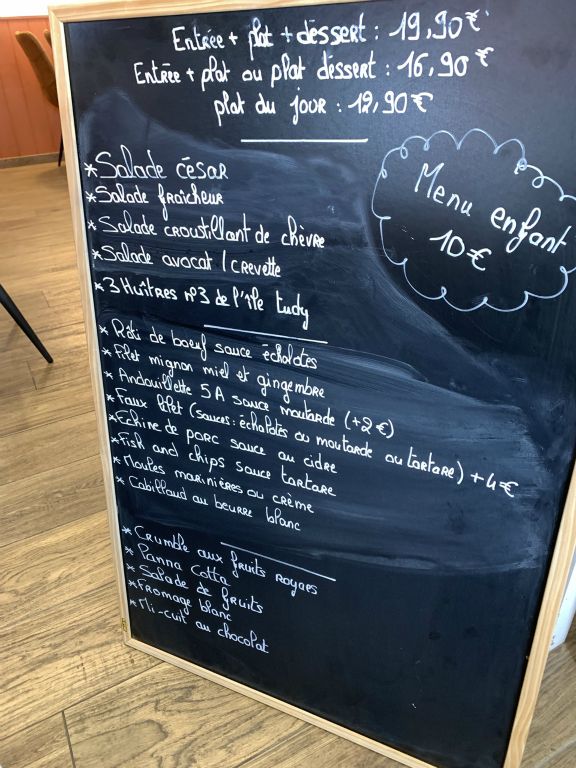 Entrée + plat + dessert : 19,90€
Entrée + plat ou plat dessert : 16,90€
plat du jour : 12,90€
Menu enfant
10€
*Salade césar
*Salade fraîcheur
*Salade croustillant de chèvre
*Salade avocat / crevette
*3 Huîtres n°3 de l'île Tudy
*Rôti de boeuf sauce échalotes
*Filet mignon miel et gingembre
*Andouillette 5A sauce moutarde (+2€)
*Faux filet (sauces : échalotes ou moutarde ou tartare) +4€
*Echine de porc sauce au cidre
*Fish and chips sauce tartare
*Moules marinières ou crème
*Cabillaud au beurre blanc
*Crumble aux fruits rouges
*Panna Cotta
*Salade de fruits
*Fromage blanc
*Mi-cuit au chocolat